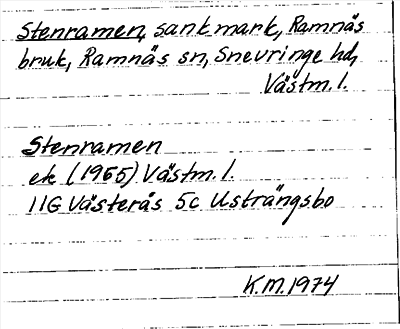 Stenramen, sank mark, Ramnäs
bruk, Ramnäs sn, Snevringe hd,
Västm. l.
Stenramen
ek (1965) Västm. l.
11G Västerås 5c Usträngsbo
K.M. 1974